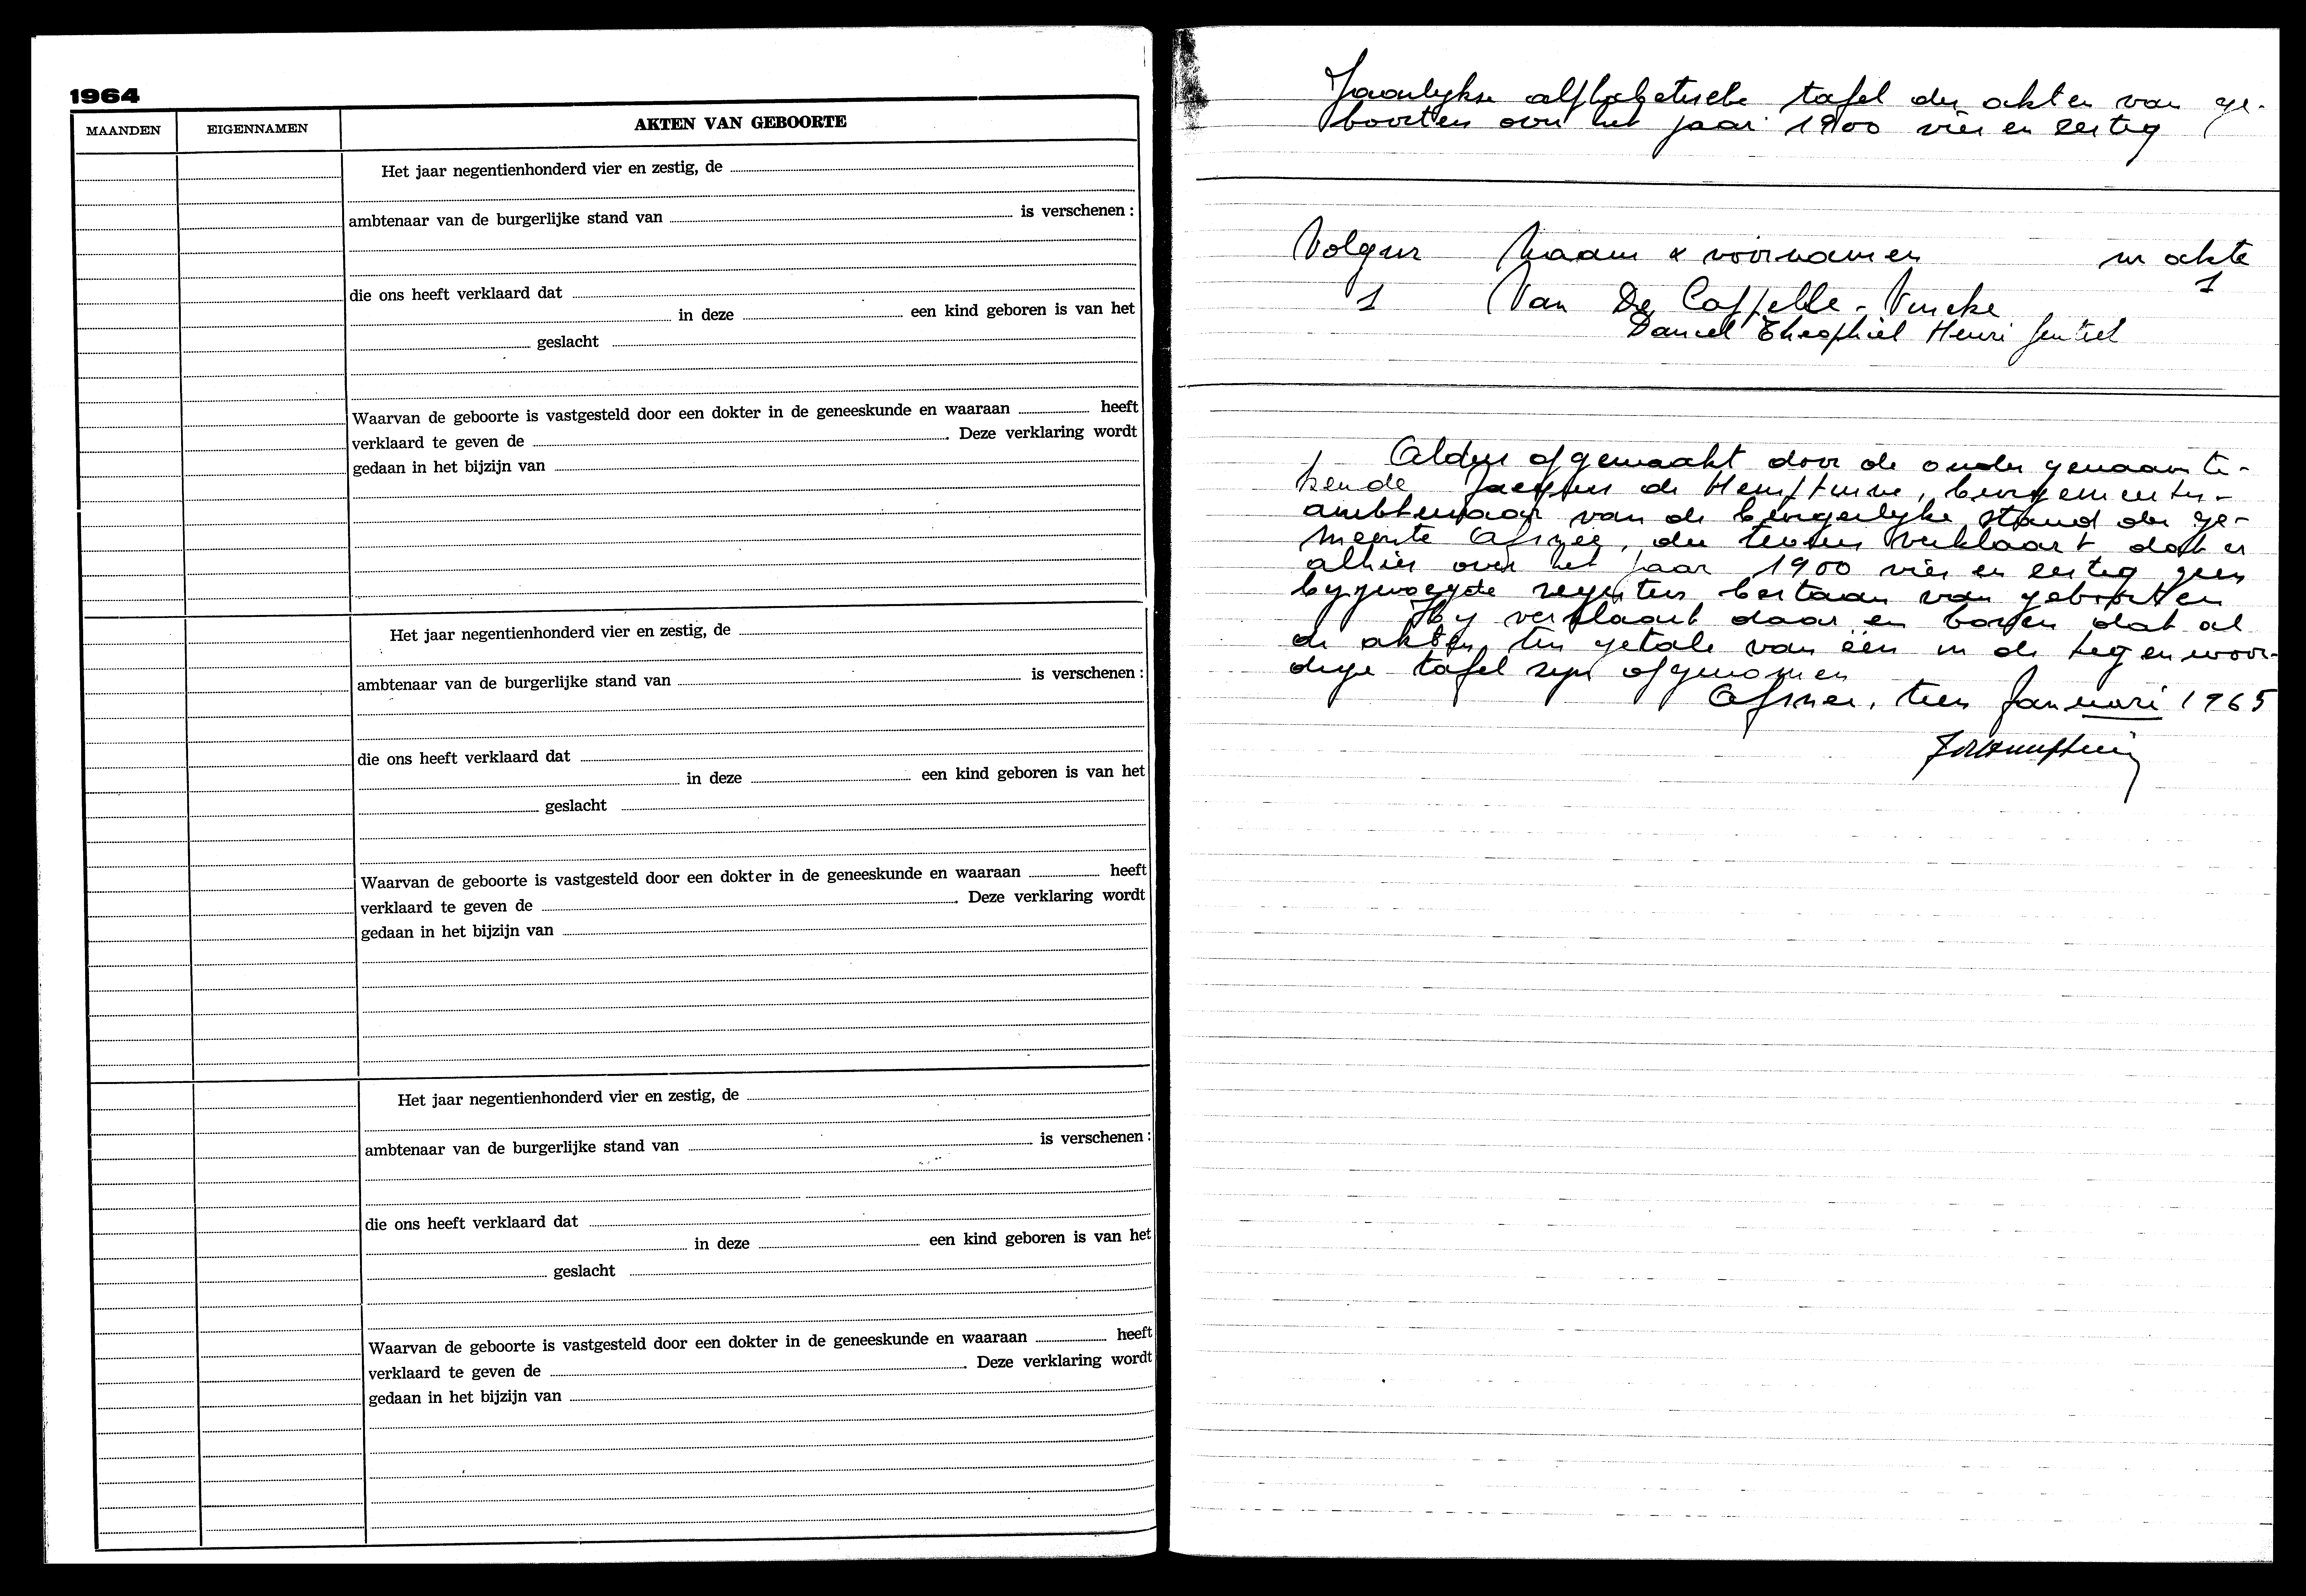 1964
MAANDEN
EIGENNAMEN
AKTEN VAN GEBOORTE
Het jaar negentienhonderd vier en zestig, de
ambtenaar van de burgerlijke stand van is verschenen :
die ons heeft verklaard dat
in deze een kind geboren is van het
geslacht
Waarvan de geboorte is vastgesteld door een dokter in de geneeskunde en waaraan heeft
verklaard te geven de . Deze verklaring wordt
gedaan in het bijzijn van
Het jaar negentienhonderd vier en zestig, de
ambtenaar van de burgerlijke stand van is verschenen :
die ons heeft verklaard dat
in deze een kind geboren is van het
geslacht
Waarvan de geboorte is vastgesteld door een dokter in de geneeskunde en waaraan heeft
verklaard te geven de . Deze verklaring wordt
gedaan in het bijzijn van
Het jaar negentienhonderd vier en zestig, de
ambtenaar van de burgerlijke stand van is verschenen :
die ons heeft verklaard dat
in deze een kind geboren is van het
geslacht
Waarvan de geboorte is vastgesteld door een dokter in de geneeskunde en waaraan heeft
verklaard te geven de . Deze verklaring wordt
gedaan in het bijzijn van
Jaarlykse alphabetische tafel der akten van ge-
boorten over het jaar 1900 vier en zestig
Volgnr Naam & voornamen nr akte
1 Van De Cappelle - Vincke 1
Daniel Theophiel Henri
Aldus opgemaakt door de onder genaamte-
kende Jacques de Hemptinne, burgemeester-
ambtenaar van de burgerlyke stand der ge-
meente Afsnee, die tevens verklaart dat er
alhier over het jaar 1900 vier en zestig geen
bygevoegde registers bestaan van geboorten
Hy verklaart daar en boven dat al
de akten, ten getale van één in de tegenwoor-
dige tafel zyn opgenomen
Afsnee, tien Januari 1965